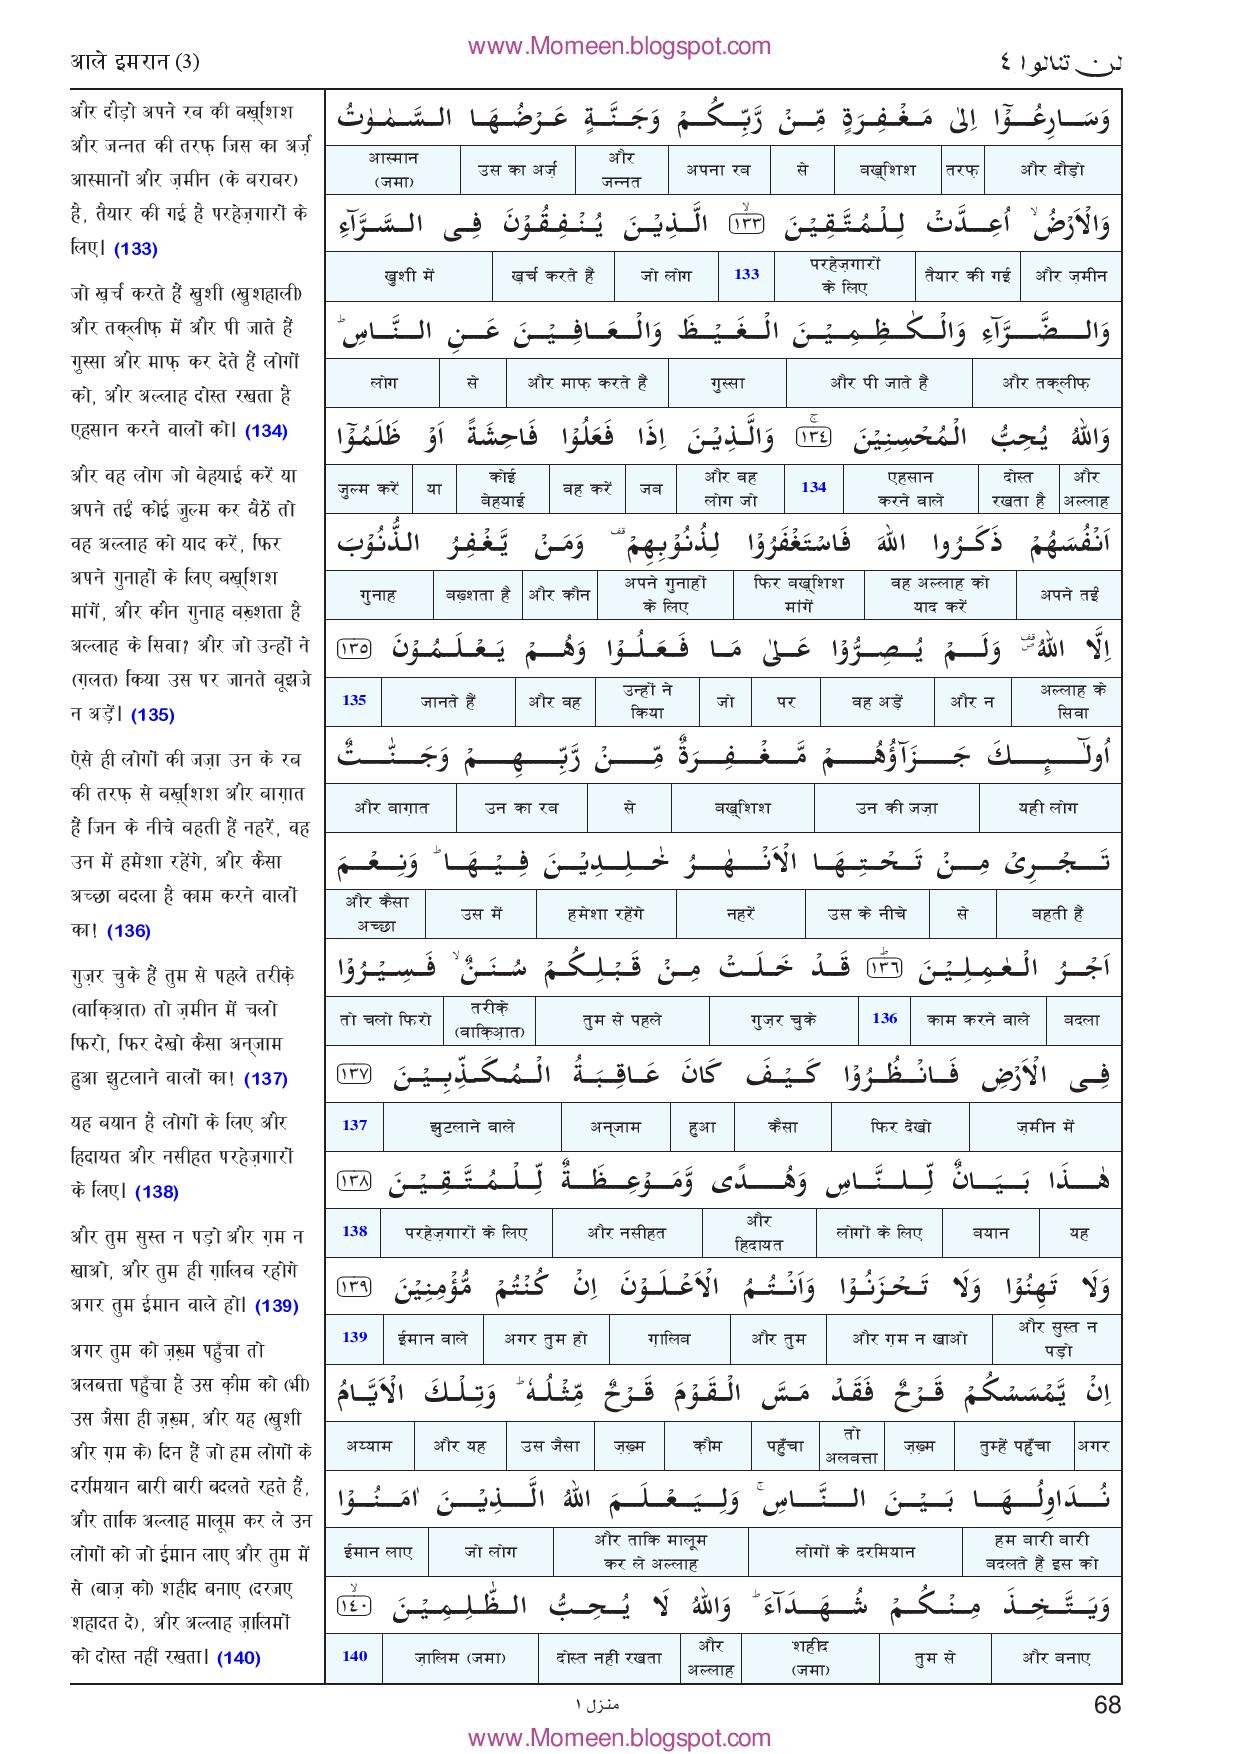 www.Momeen.blogspot.com
आले इमरान (3)
لن تنالوا ٤
और दौड़ो अपने रब की बख़्शिश
और जन्नत की तरफ़ जिस का अर्ज़
आस्मानों और ज़मीन (के बराबर)
है, तैयार की गई है परहेज़गारों के
लिए। (133)
जो ख़र्च करते हैं ख़ुशी (ख़ुशहाली)
और तक्लीफ़ में और पी जाते हैं
गुस्सा और माफ़ कर देते हैं लोगों
को, और अल्लाह दोस्त रखता है
एहसान करने वालों को। (134)
और वह लोग जो बेहयाई करें या
अपने तईं कोई जुल्म कर बैठें तो
वह अल्लाह को याद करें, फिर
अपने गुनाहों के लिए बख़्शिश
मांगें, और कौन गुनाह बख़्शता है
अल्लाह के सिवा? और जो उन्हों ने
(ग़लत) किया उस पर जानते बूझते
न अड़ें। (135)
ऐसे ही लोगों की जज़ा उन के रब
की तरफ़ से बख़्शिश और बाग़ात
हैं जिन के नीचे बहती हैं नहरें, वह
उन में हमेशा रहेंगे, और कैसा
अच्छा बदला है काम करने वालों
का! (136)
गुज़र चुके हैं तुम से पहले तरीक़े
(वाक़िआ़त) तो ज़मीन में चलो
फिरो, फिर देखो कैसा अन्जाम
हुआ झुटलाने वालों का! (137)
यह बयान है लोगों के लिए और
हिदायत और नसीहत परहेज़गारों
के लिए। (138)
और तुम सुस्त न पड़ो और ग़म न
खाओ, और तुम ही ग़ालिब रहोगे
अगर तुम ईमान वाले हो। (139)
अगर तुम को ज़ख़्म पहुँचा तो
अलबत्ता पहुँचा है उस क़ौम को (भी)
उस जैसा ही ज़ख़्म, और यह (ख़ुशी
और ग़म के) दिन हैं जो हम लोगों के
दरमियान बारी बारी बदलते रहते हैं,
और ताकि अल्लाह मालूम कर ले उन
लोगों को जो ईमान लाए और तुम में
से (बाज़ को) शहीद बनाए (दरजए
शहादत दे), और अल्लाह ज़ालिमों
को दोस्त नहीं रखता। (140)
وَسَارِعُوْٓا اِلٰى مَغْفِرَةٍ مِّنْ رَّبِّكُمْ وَجَنَّةٍ عَرْضُهَا السَّمٰوٰتُ
और दौड़ो तरफ़ बख़्शिश से अपना रब और जन्नत उस का अर्ज़ आस्मान (जमा)
وَالْاَرْضُ ۙ اُعِدَّتْ لِلْمُتَّقِيْنَ ۙ﴿١٣٣﴾ الَّذِيْنَ يُنْفِقُوْنَ فِى السَّرَّآءِ
और ज़मीन तैयार की गई परहेज़गारों के लिए 133 जो लोग ख़र्च करते हैं ख़ुशी में
وَالضَّرَّآءِ وَالْكٰظِمِيْنَ الْغَيْظَ وَالْعَافِيْنَ عَنِ النَّاسِ ؕ
और तक्लीफ़ और पी जाते हैं गुस्सा और माफ़ करते हैं से लोग
وَاللّٰهُ يُحِبُّ الْمُحْسِنِيْنَ ۚ﴿١٣٤﴾ وَالَّذِيْنَ اِذَا فَعَلُوْا فَاحِشَةً اَوْ ظَلَمُوْٓا
और अल्लाह दोस्त रखता है एहसान करने वाले 134 और वह लोग जो जब वह करें कोई बेहयाई या जुल्म करें
اَنْفُسَهُمْ ذَكَرُوا اللّٰهَ فَاسْتَغْفَرُوْا لِذُنُوْبِهِمْ ۫ وَمَنْ يَّغْفِرُ الذُّنُوْبَ
अपने तईं वह अल्लाह को याद करें फिर बख़्शिश मांगें अपने गुनाहों के लिए और कौन बख़्शता है गुनाह
اِلَّا اللّٰهُ ۪ وَلَمْ يُصِرُّوْا عَلٰى مَا فَعَلُوْا وَهُمْ يَعْلَمُوْنَ ﴿١٣٥﴾
अल्लाह के सिवा और न वह अड़ें पर जो उन्हों ने किया और वह जानते हैं 135
اُولٰٓئِكَ جَزَآؤُهُمْ مَّغْفِرَةٌ مِّنْ رَّبِّهِمْ وَجَنّٰتٌ
यही लोग उन की जज़ा बख़्शिश से उन का रब और बाग़ात
تَجْرِىْ مِنْ تَحْتِهَا الْاَنْهٰرُ خٰلِدِيْنَ فِيْهَا ؕ وَنِعْمَ
बहती हैं से उस के नीचे नहरें हमेशा रहेंगे उस में और कैसा अच्छा
اَجْرُ الْعٰمِلِيْنَ ؕ﴿١٣٦﴾ قَدْ خَلَتْ مِنْ قَبْلِكُمْ سُنَنٌ ۙ فَسِيْرُوْا
बदला काम करने वाले 136 गुज़र चुके तुम से पहले तरीक़े (वाक़िआ़त) तो चलो फिरो
فِى الْاَرْضِ فَانْظُرُوْا كَيْفَ كَانَ عَاقِبَةُ الْمُكَذِّبِيْنَ ﴿١٣٧﴾
ज़मीन में फिर देखो कैसा हुआ अन्जाम झुटलाने वाले 137
هٰذَا بَيَانٌ لِّلنَّاسِ وَهُدًى وَّمَوْعِظَةٌ لِّلْمُتَّقِيْنَ ﴿١٣٨﴾
यह बयान लोगों के लिए और हिदायत और नसीहत परहेज़गारों के लिए 138
وَلَا تَهِنُوْا وَلَا تَحْزَنُوْا وَاَنْتُمُ الْاَعْلَوْنَ اِنْ كُنْتُمْ مُّؤْمِنِيْنَ ﴿١٣٩﴾
और सुस्त न पड़ो और ग़म न खाओ और तुम ग़ालिब अगर तुम हो ईमान वाले 139
اِنْ يَّمْسَسْكُمْ قَرْحٌ فَقَدْ مَسَّ الْقَوْمَ قَرْحٌ مِّثْلُهٗ ؕ وَتِلْكَ الْاَيَّامُ
अगर तुम्हें पहुँचा ज़ख़्म तो अलबत्ता पहुँचा क़ौम ज़ख़्म उस जैसा और यह अय्याम
نُدَاوِلُهَا بَيْنَ النَّاسِ ۚ وَلِيَعْلَمَ اللّٰهُ الَّذِيْنَ اٰمَنُوْا
हम बारी बारी बदलते हैं इस को लोगों के दरमियान और ताकि मालूम कर ले अल्लाह जो लोग ईमान लाए
وَيَتَّخِذَ مِنْكُمْ شُهَدَآءَ ؕ وَاللّٰهُ لَا يُحِبُّ الظّٰلِمِيْنَ ۙ﴿١٤٠﴾
और बनाए तुम से शहीद (जमा) और अल्लाह दोस्त नहीं रखता ज़ालिम (जमा) 140
منزل ١
68
www.Momeen.blogspot.com